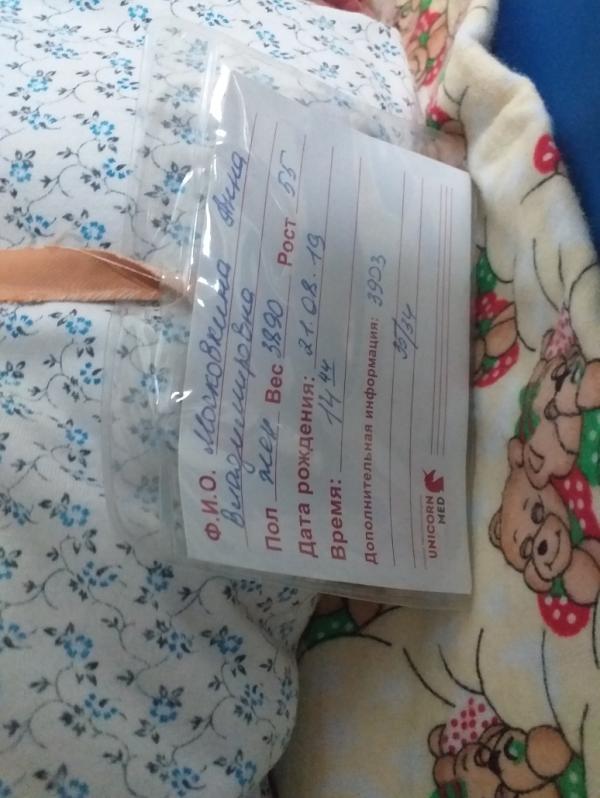 Ф.И.О. Московкина Анна
Владимировна
Пол жен Вес 3890 Рост 55
Дата рождения: 21.08.19
Время: 14 44
Дополнительная информация: 3903
35/34
UNICORN
MED